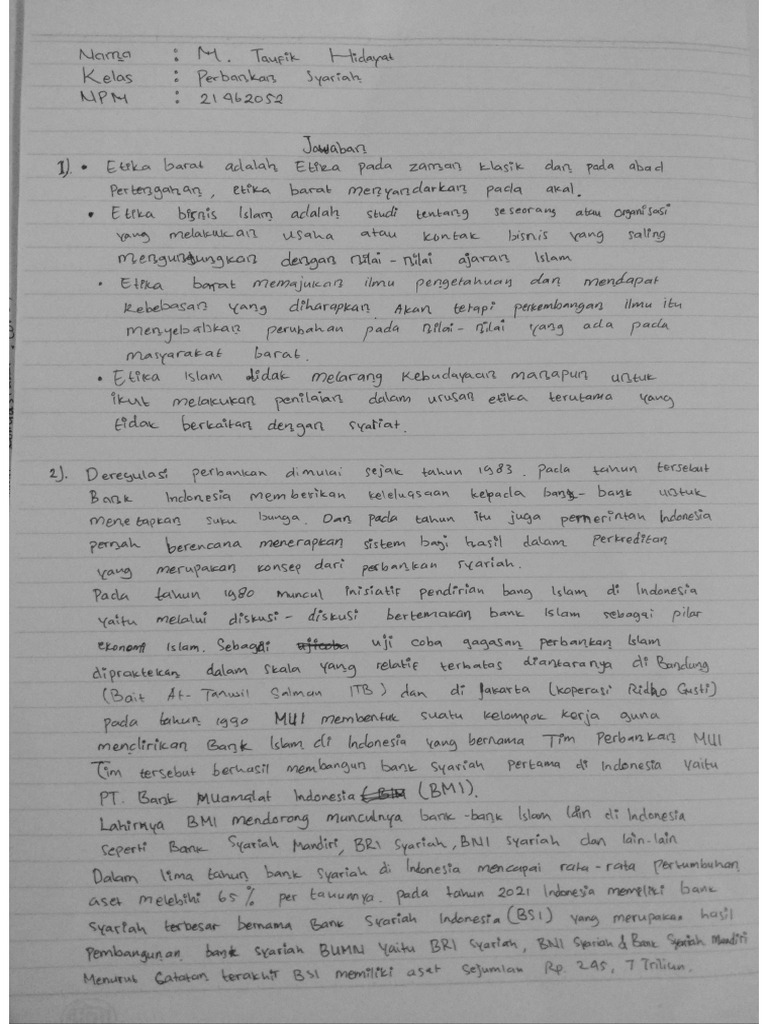 Nama : M. Taufik Hidayat
Kelas : Perbankan Syariah
NPM : 21462052
Jawaban
1). • Etika barat adalah Etika pada zaman klasik dan pada abad
Pertengahan, etika barat menyandarkan pada akal.
• Etika bisnis Islam adalah studi tentang seseorang atau organisasi
yang melakukan usaha atau kontak bisnis yang saling
menguntungkan dengan nilai-nilai ajaran Islam
• Etika barat memajukan ilmu pengetahuan dan mendapat
kebebasan yang diharapkan. Akan tetapi perkembangan ilmu itu
menyebabkan perubahan pada nilai-nilai yang ada pada
masyarakat barat.
• Etika Islam tidak melarang kebudayaan manapun untuk
ikut melakukan penilaian dalam urusan etika terutama yang
tidak berkaitan dengan syariat.
2). Deregulasi perbankan dimulai sejak tahun 1983. Pada tahun tersebut
Bank Indonesia memberikan keleluasaan kepada bank-bank untuk
menetapkan suku bunga. Dan pada tahun itu juga pemerintah Indonesia
pernah berencana menerapkan sistem bagi hasil dalam perkreditan
yang merupakan konsep dari perbankan syariah.
Pada tahun 1980 muncul inisiatif pendirian bang Islam di Indonesia
yaitu melalui diskusi-diskusi bertemakan bank Islam sebagai pilar
ekonomi Islam. Sebagai ujicoba uji coba gagasan perbankan Islam
dipraktekan dalam skala yang relatif terbatas diantaranya di Bandung
(Bait At-Tamwil Salman ITB) dan di Jakarta (koperasi Ridho Gusti)
pada tahun 1990 MUI membentuk suatu kelompok kerja guna
mendirikan Bank Islam di Indonesia yang bernama Tim Perbankan MUI
Tim tersebut berhasil membangun bank syariah pertama di Indonesia yaitu
PT. Bank Muamalat Indonesia (BMI).
Lahirnya BMI mendorong munculnya bank-bank Islam lain di Indonesia
seperti Bank Syariah Mandiri, BRI Syariah, BNI Syariah dan lain-lain
Dalam lima tahun bank syariah di Indonesia mencapai rata-rata pertumbuhan
aset melebihi 65% per tauunya. pada tahun 2021 Indonesia memiliki bank
syariah terbesar bernama Bank Syariah Indonesia (BSI) yang merupakan hasil
Pembangunan bank syariah BUMN yaitu BRI Syariah, BNI Syariah & Bank Syariah Mandiri
Menurut Catatan terakhir BSI memiliki aset sejumlah Rp. 245, 7 Triliun.